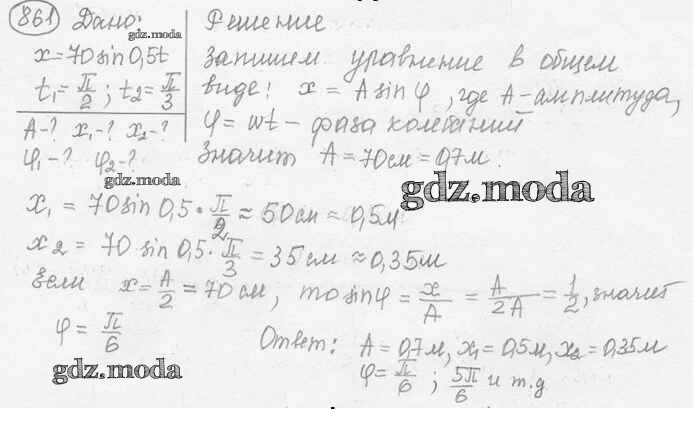 861 Дано:
gdz.moda
x=70 sin 0,5t
t₁= π/2; t₂= π/3
A-? x₁-? x₂-?
φ₁-? φ₂-?
gdz.moda
Решение
Запишем уравнение в общем
виде: x = A sin φ, где A-амплитуда,
φ = wt - фаза колебаний
Значит A = 70см = 0,7м.
gdz.moda
x₁ = 70 sin 0,5 · π/2 ≈ 50см ≈ 0,5м
x₂ = 70 sin 0,5 · π/3 = 35см ≈ 0,35м
Если x = A/2 = 70см, то sin φ = x/A = A/2A = 1/2, значит
φ = π/6
gdz.moda
Ответ: A = 0,7м, x₁ = 0,5м, x₂ = 0,35м
φ = π/6; 5π/6 и т.д